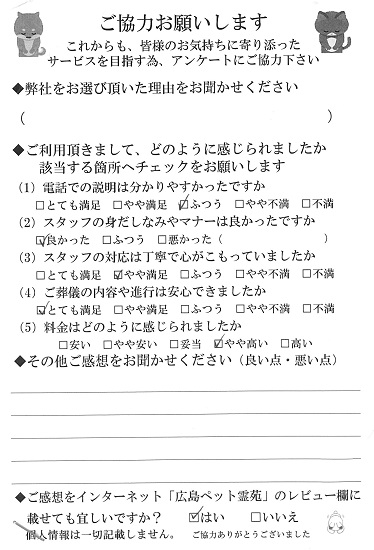 ご協力お願いします
これからも、皆様のお気持ちに寄り添った
サービスを目指す為、アンケートにご協力下さい
◆弊社をお選び頂いた理由をお聞かせください
(　　　　　　　　　　　　　　　　)
◆ご利用頂きまして、どのように感じられましたか
該当する箇所へチェックをお願いします
(1) 電話での説明は分かりやすかったですか
□とても満足 □やや満足 ☑ふつう □やや不満 □不満
(2) スタッフの身だしなみやマナーは良かったですか
☑良かった □ふつう □悪かった (　　　　　　　　)
(3) スタッフの対応は丁寧で心がこもっていましたか
□とても満足 ☑やや満足 □ふつう □やや不満 □不満
(4) ご葬儀の内容や進行は安心できましたか
☑とても満足 □やや満足 □ふつう □やや不満 □不満
(5) 料金はどのように感じられましたか
□安い □やや安い □妥当 ☑やや高い □高い
◆その他ご感想をお聞かせください (良い点・悪い点)
◆ご感想をインターネット「広島ペット霊苑」のレビュー欄に
載せても宜しいですか？ ☑はい □いいえ
個人情報は一切記載しません。 ご協力ありがとうございました